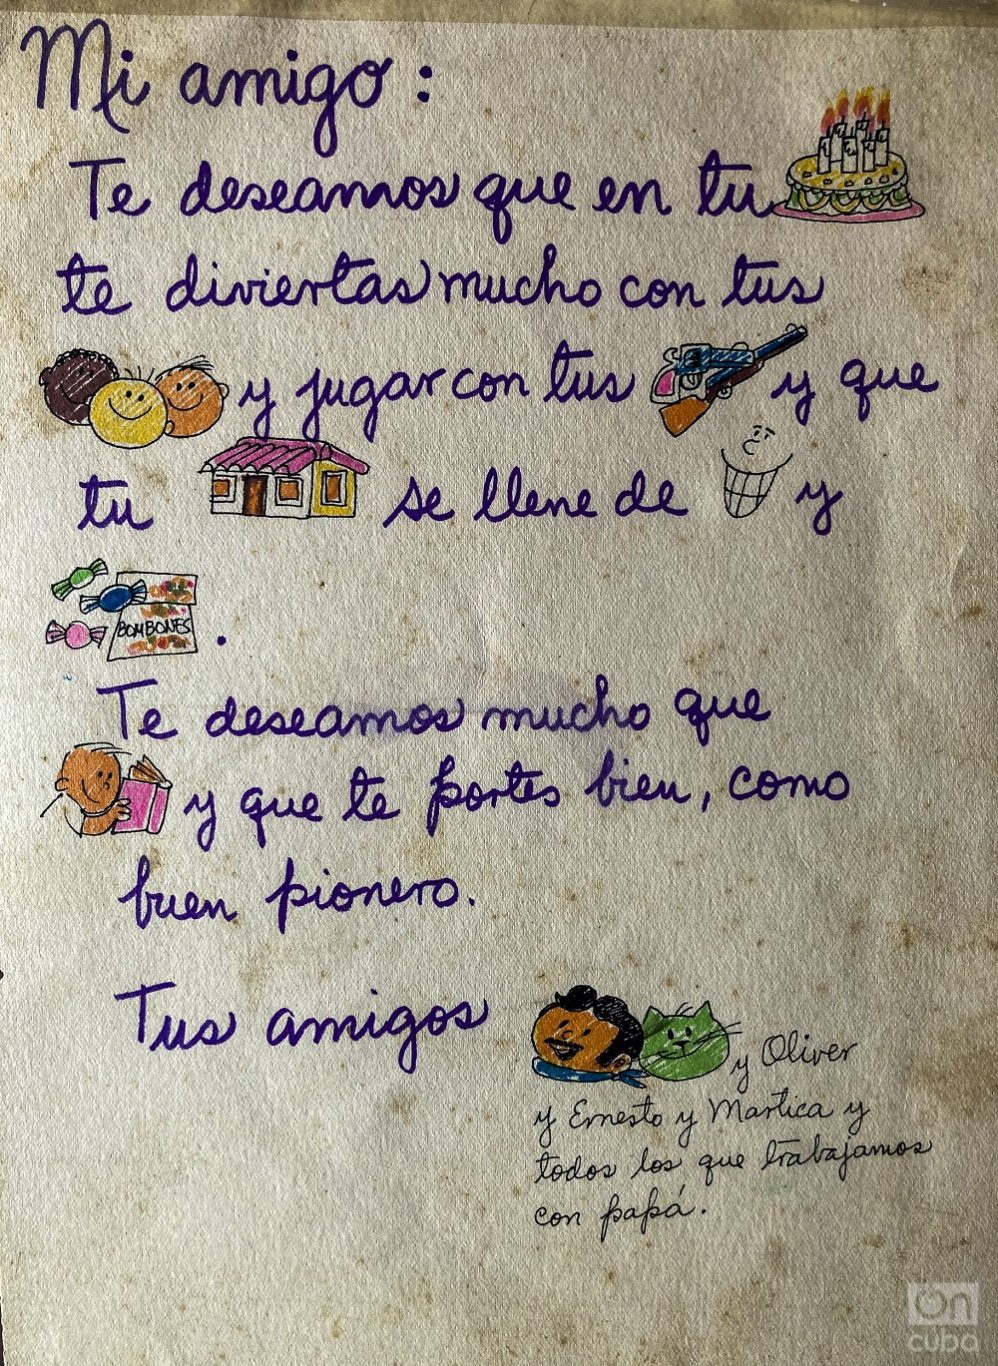 Mi amigo:
Te deseamos que en tu
te diviertas mucho con tus
y jugar con tus y que
tu se llene de y
BOMBONES .
Te deseamos mucho que
y que te portes bien, como
buen pionero.
Tus amigos
y Oliver
y Ernesto y Martica y
todos los que trabajamos
con papá.
On
cuba